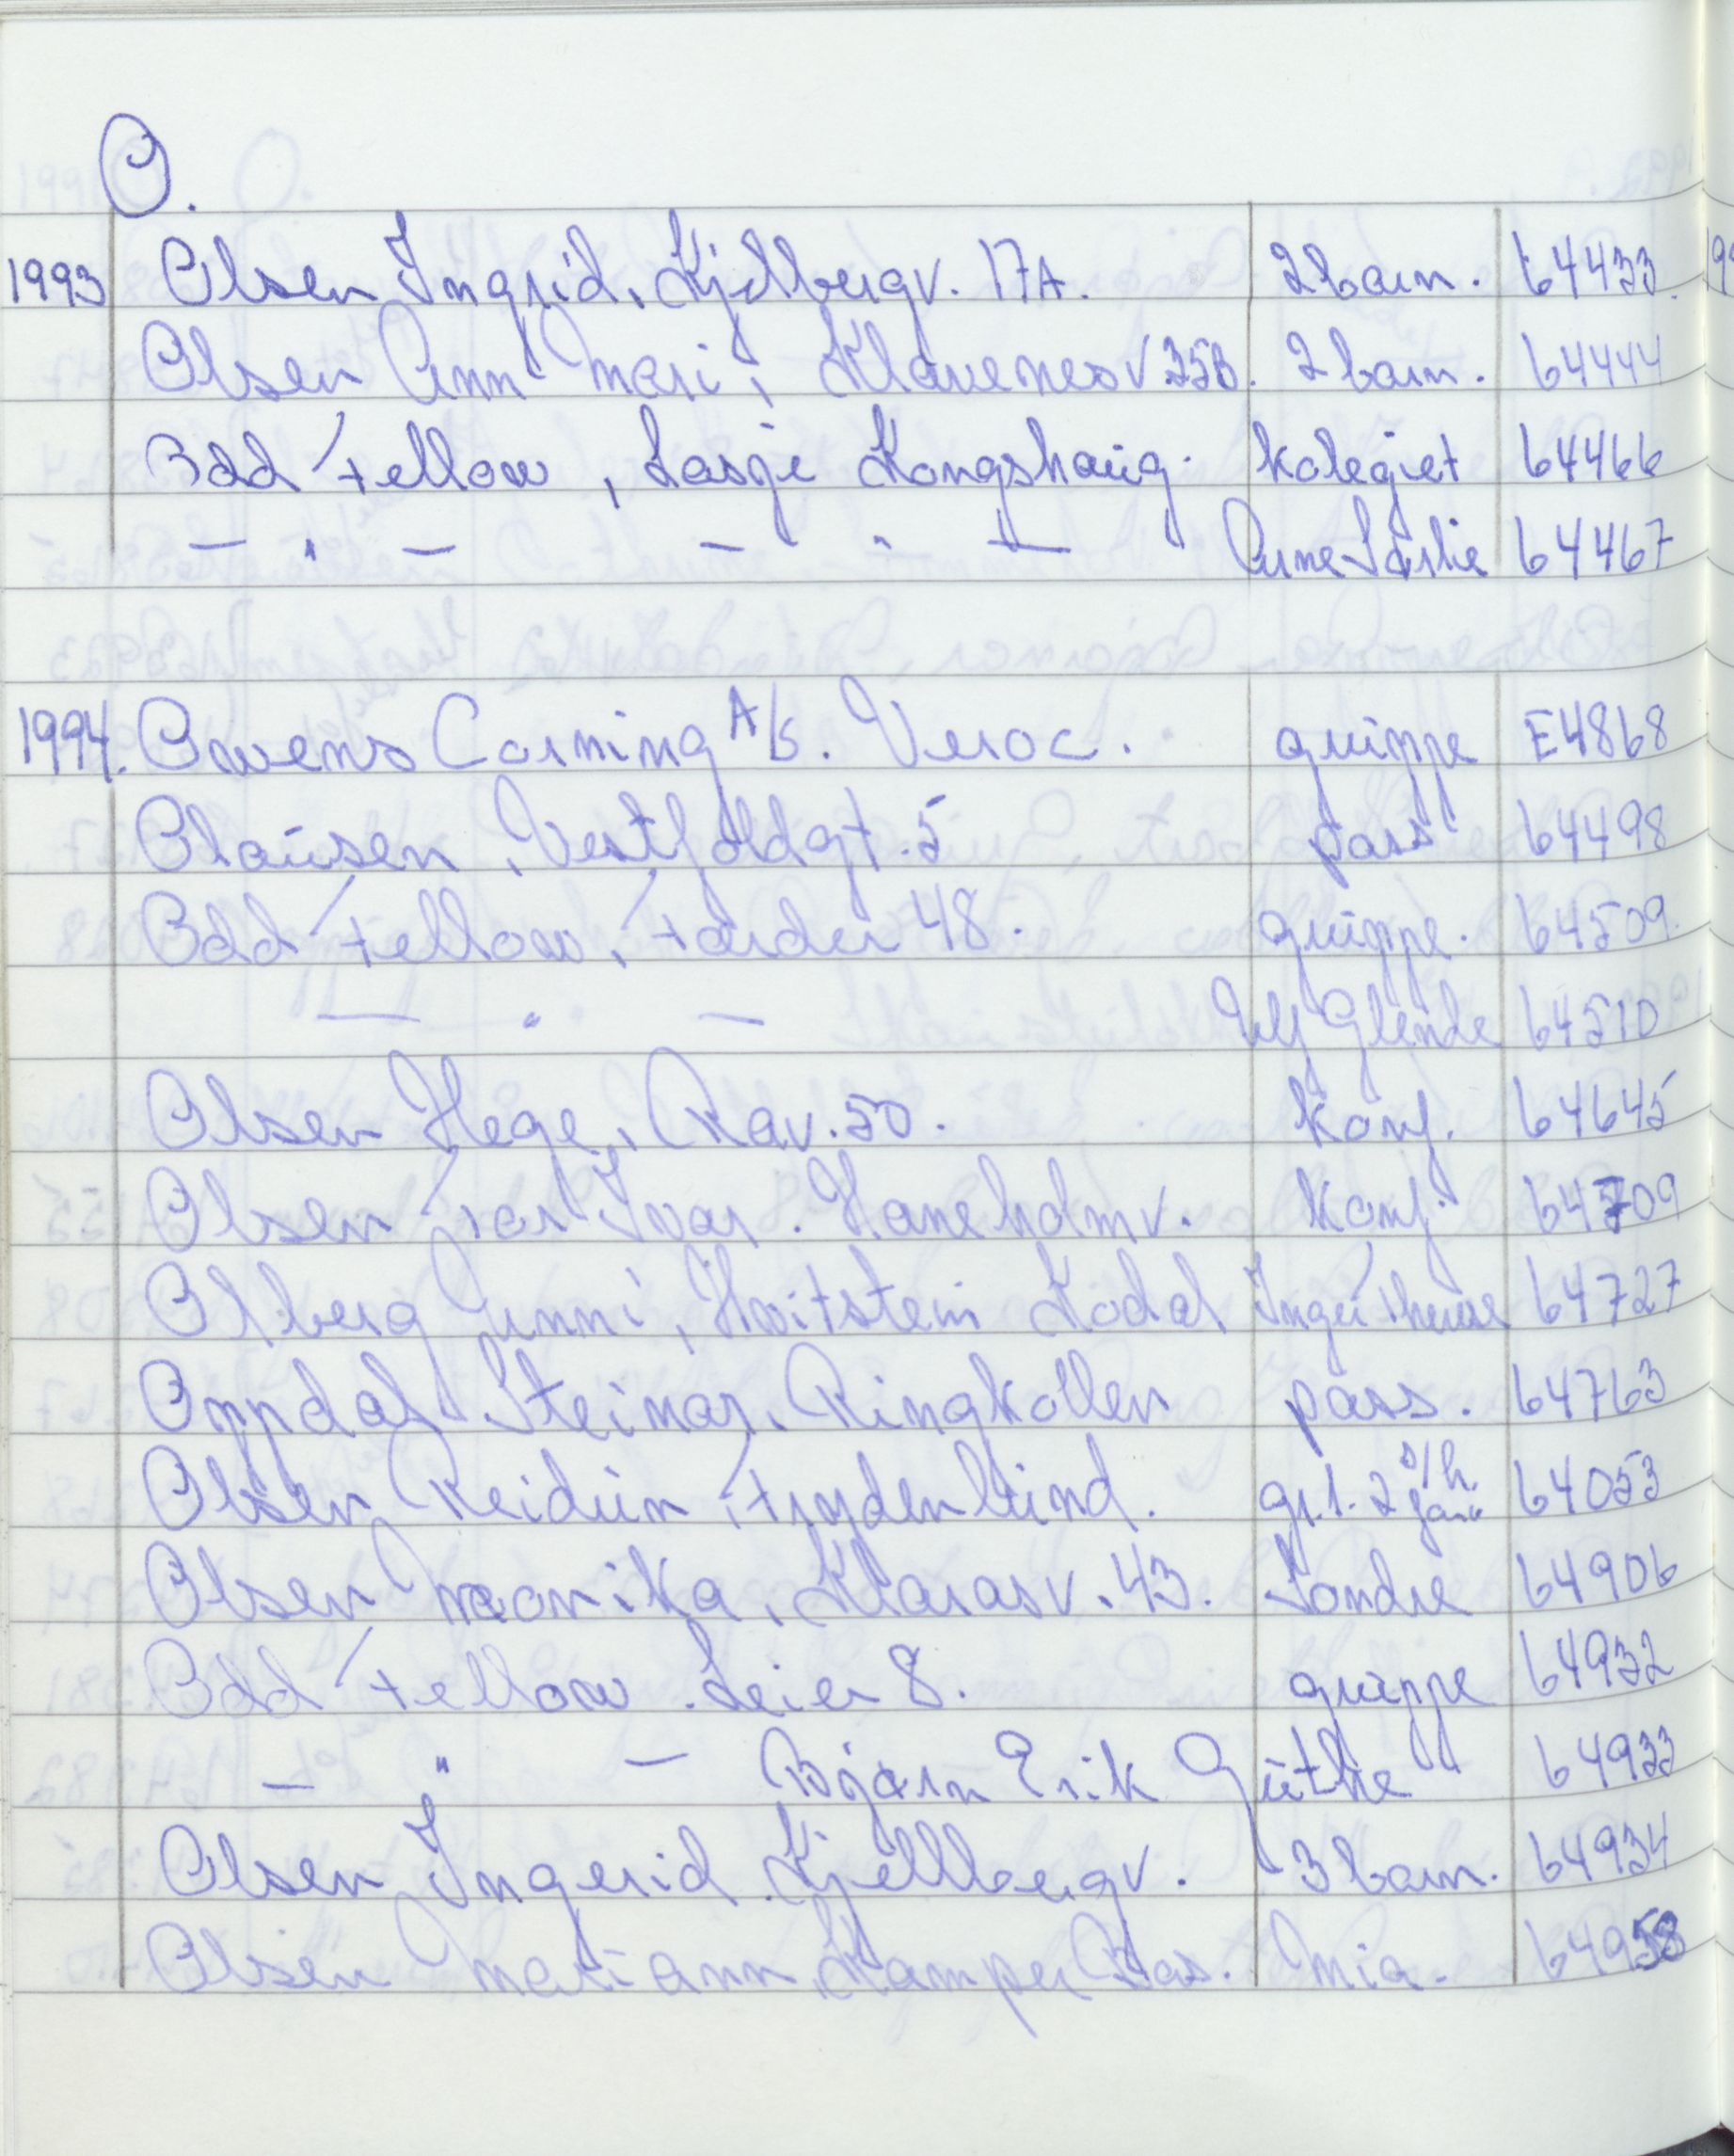 O.
1993 Olsen Ingrid, Kjellbergv. 17A. 2 barn. 64433.
Olsen Ann Mari, Klavenesv 35B. 2 barn. 64444
Odd Fellow, Losje Kongshaug. kolegiet 64466
— " — — " — Arne Sørlie 64467
1994. Owens Corning A/S. Veroc. gruppe E4868
Olaussen, Vestfoldgt. 5 pass 64498
Odd Fellow, Færder 48. gruppe. 64509.
— " — Ulf Glende 64510
Olsen Hege, Rav. 50. Konf. 64645
Olsen Tor Ivar. Haneholmv. Konf. 64709
Olberg Unni, Hvitstein Kodal 64727
Oppdal Steinar, Ringkollen pass. 64763
Olsen Reidun, Frydenlund. gr. 1. 2 s/h 64053
Olsen Monika, Klarasv. 43. Sondre 64906
Odd Fellow. Leier 8. gruppe 64932
— " — Bjørn Erik Güthe 64933
Olsen Ingerid Kjellbergv. 3 barn. 64934
Olsen Mari-ann, Kamper Mia. 64958